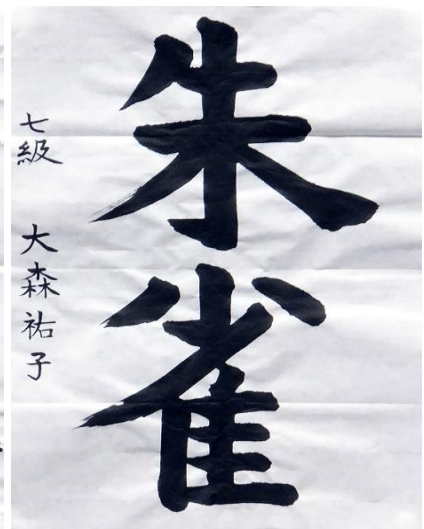 朱雀
七級 大森祐子